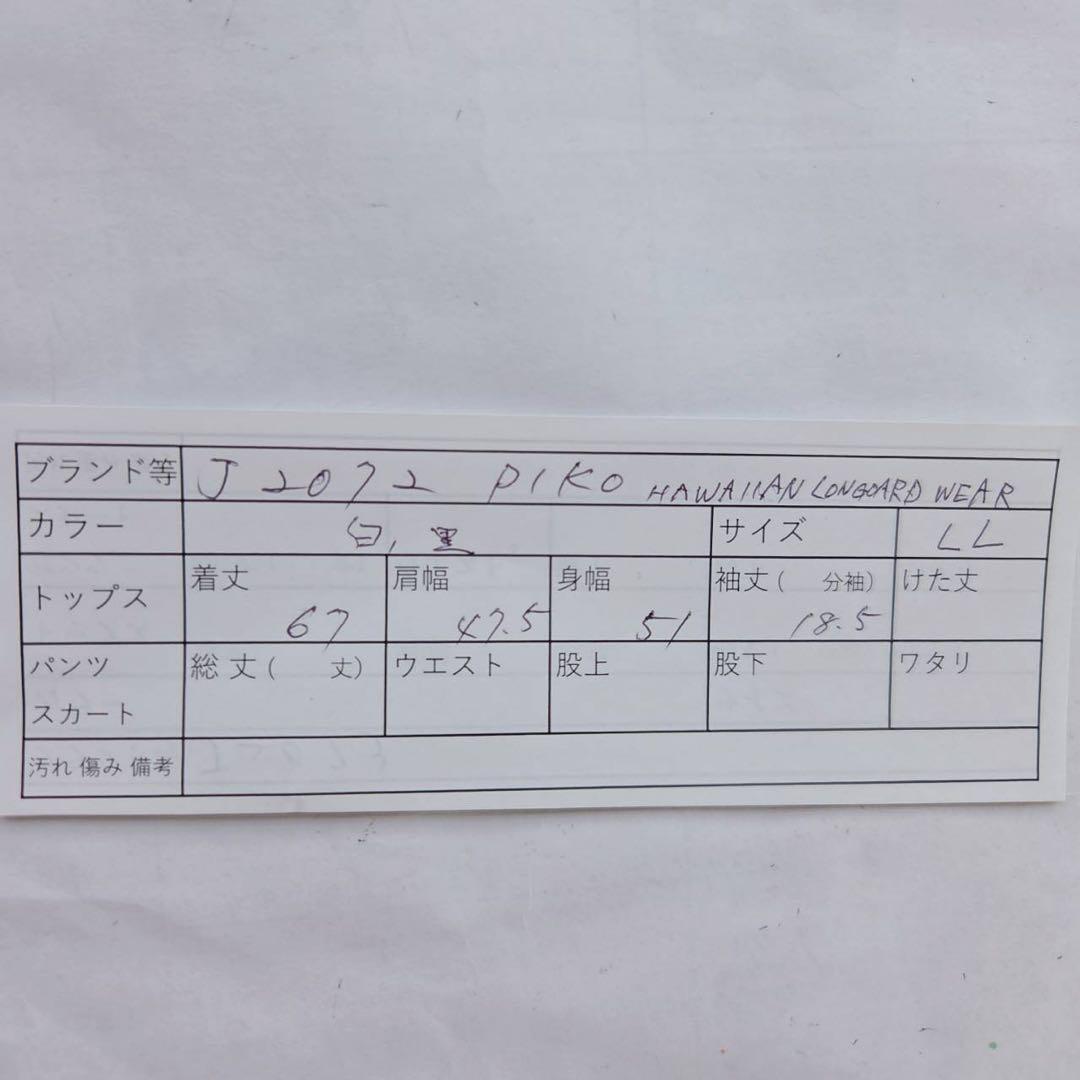 ブランド等 J 2072 PIKO HAWAIIAN LONGOARD WEAR
カラー 白, 黒 サイズ LL
トップス 着丈 67 肩幅 47.5 身幅 51 袖丈( 分袖) 18.5 けた丈
パンツ スカート 総丈( 丈) ウエスト 股上 股下 ワタリ
汚れ 傷み 備考